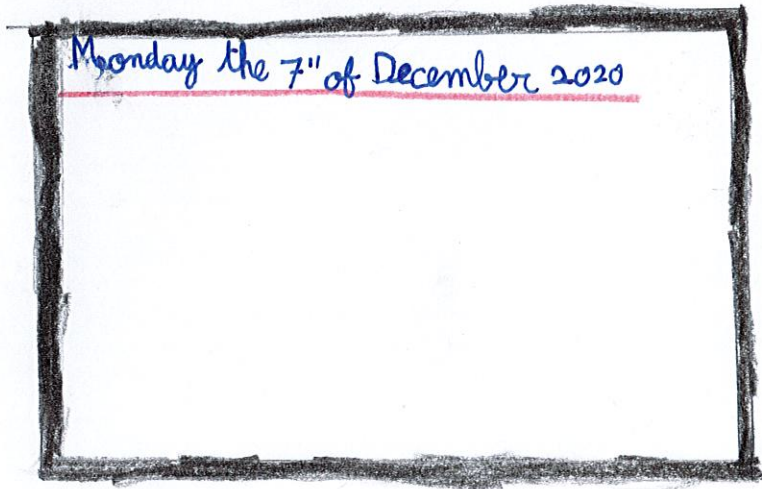 Monday the 7" of December 2020